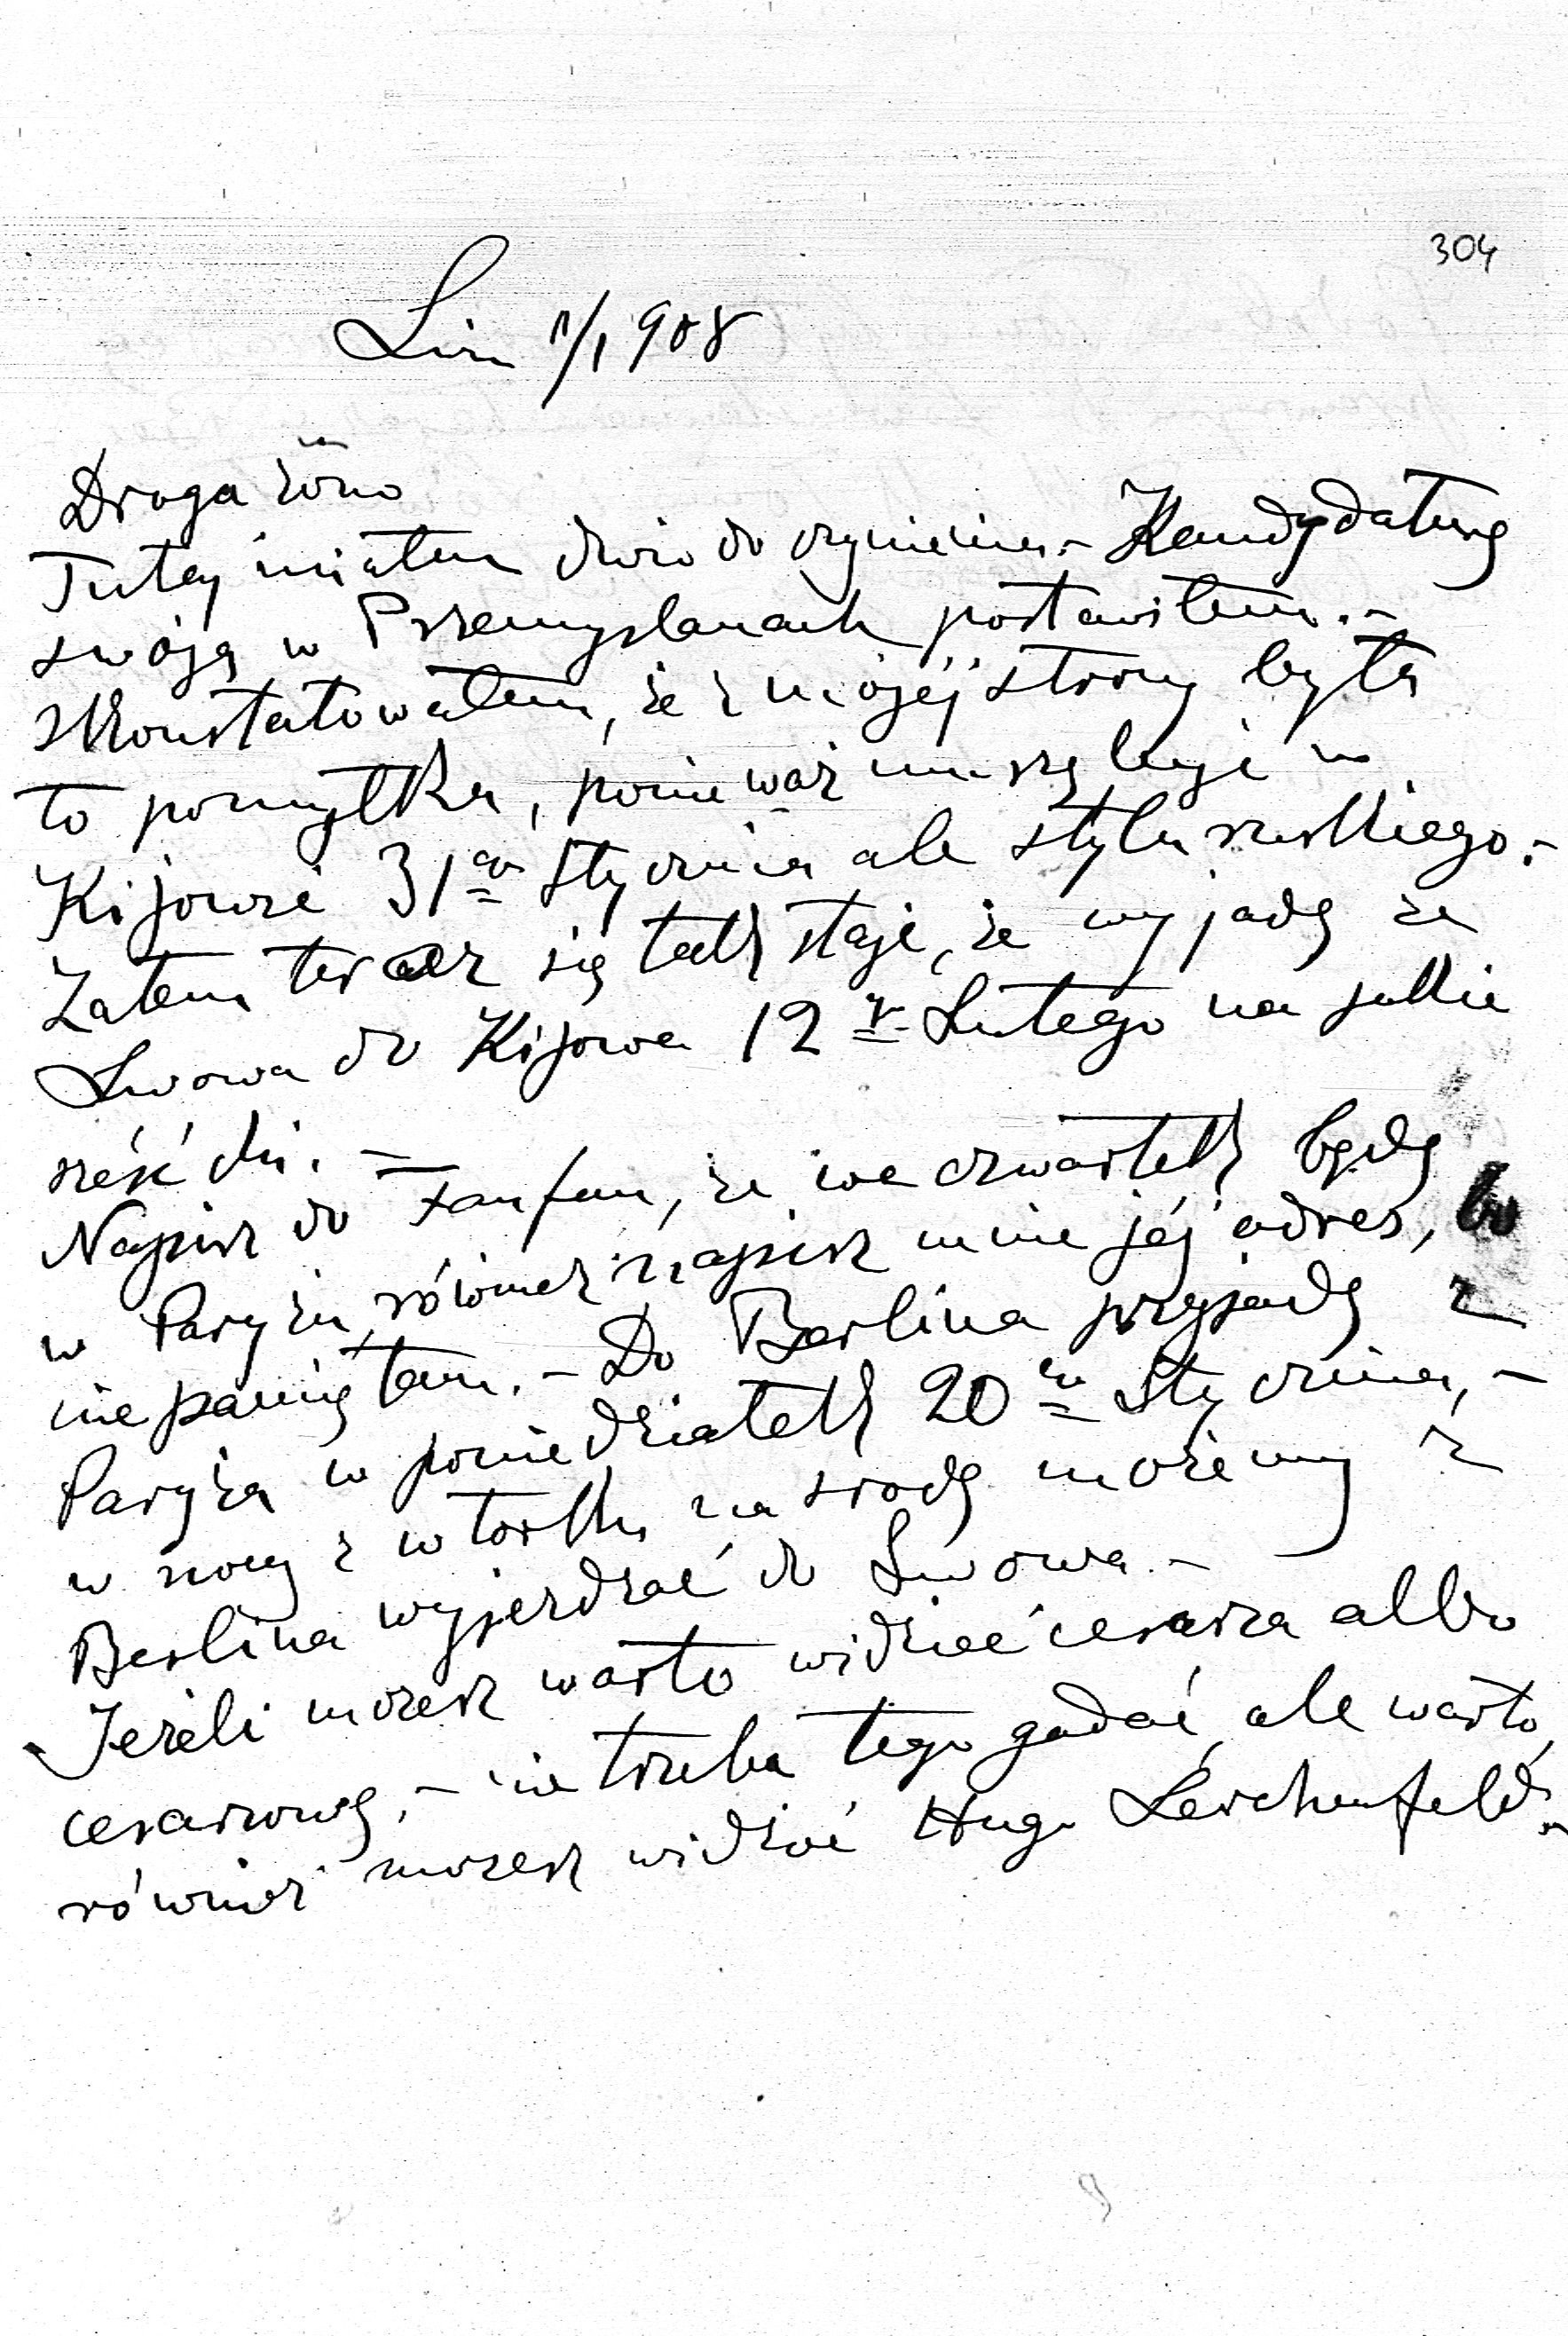 304
1/1 1908
Droga żono
Tutaj miałem dużo do czynienia.- Kandydaturę
swoją w Przemyslanach postawiłem.-
Skonstatowałem, że z mojej strony była
to pomyłka, ponieważ muszę być w
Kijowie 31go Stycznia ale stylu ruskiego.-
Zatem teraz się tak staje, że wyjadę ze
Lwowa do Kijowa 12go Lutego na jakie
sześć dni. -
Napisz do Fanfan, że we czwartek będę
w Paryżu, również napisz mnie jéj adres, bo
nie pamiętam. - Do Berlina przyjadę z
Paryża w poniedziałek 20go Stycznia, -
w nocy z wtorku na środę możemy z
Berlina wyjeżdżać do Lwowa. -
Jeżeli możesz warto widzieć cesarza albo
cesarzową, - nie trzeba tego gadać, ale warto,
również możesz widzieć Hugo Lerchenfeld.-